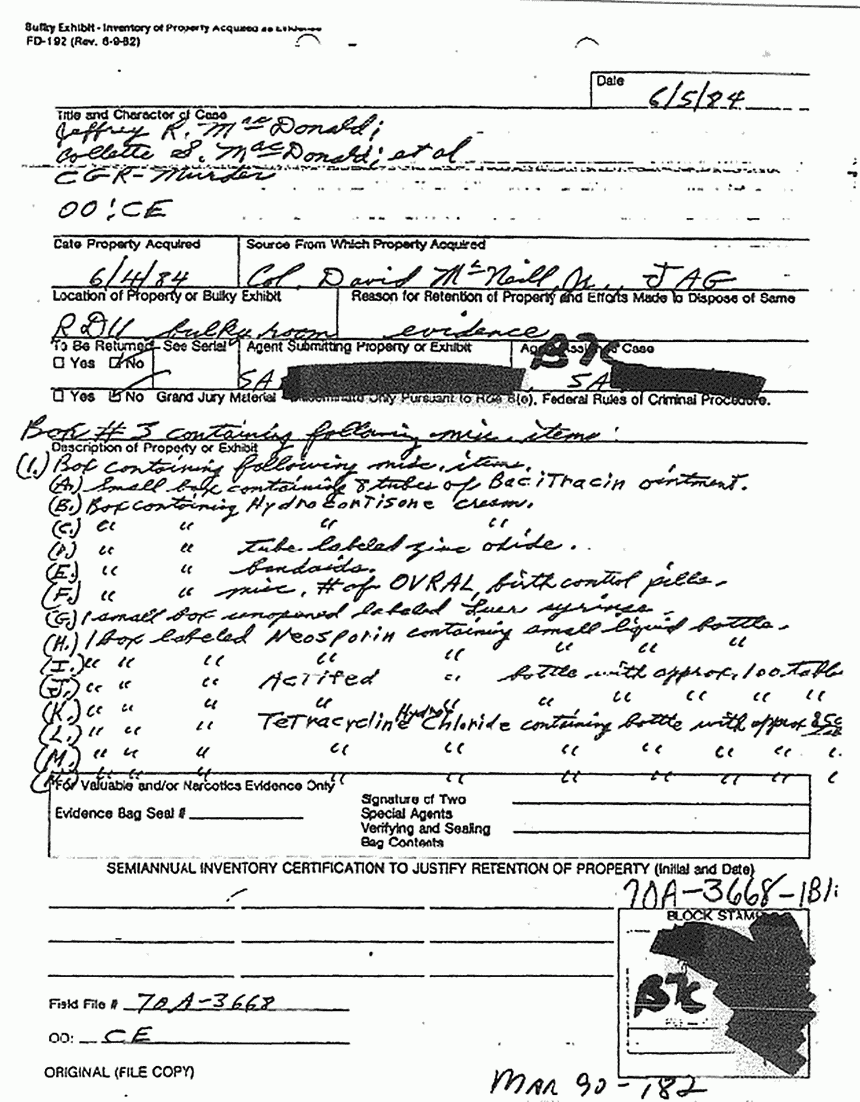 Bulky Exhibit - Inventory of Property Acquired as Evidence
FD-192 (Rev. 6-9-82)
Date
6/5/84
Title and Character of Case
Jeffrey R. MacDonald;
Collette S. MacDonald; et al
CGR-Murder
OO: CE
Date Property Acquired Source From Which Property Acquired
6/4/84 Col. David McNeill, Jr., JAG
Location of Property or Bulky Exhibit Reason for Retention of Property and Efforts Made to Dispose of Same
RDU bulky room evidence
To Be Returned See Serial Agent Submitting Property or Exhibit Case
B7C
Yes No SA SA
Yes No Grand Jury Material - Disseminate Only Pursuant to Rule 6(e), Federal Rules of Criminal Procedure.
Box # 3 containing following misc. items:
Description of Property or Exhibit
(1.) Box containing following misc. items.
(A.) Small box containing 8 tubes of BaciTracin ointment.
(B.) Box containing HydroCorTisone cream.
(C.) " " " "
(D.) " " tube labeled zinc oxide.
(E.) " " bandaids.
(F.) " " misc. # of OVRAL birth control pills.
(G.) 1 small box unopened labeled Luer syringe.
(H.) 1 box labeled Neosporin containing small liquid bottle.
(I.) " " " " " " " "
(J.) " " " AcTifed " bottle with approx. 100 table
(K.) " " " " " " " " " "
(L.) " " " TeTracycline Hydro Chloride containing bottle with approx
(M.) " " " " " " " " " "
" " " " " " " " " "
For Valuable and/or Narcotics Evidence Only
Evidence Bag Seal #
Signature of Two
Special Agents
Verifying and Sealing
Bag Contents
SEMIANNUAL INVENTORY CERTIFICATION TO JUSTIFY RETENTION OF PROPERTY (Initial and Date)
70A-3668-1B1
BLOCK STAMP
B7C
Field File # 70A-3668
OO: CE
ORIGINAL (FILE COPY)
MAR 90-182